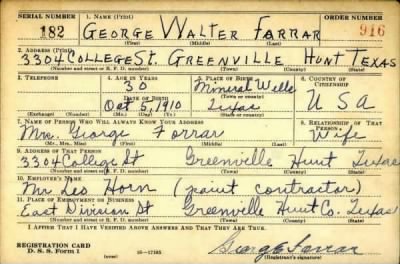 SERIAL NUMBER 1. NAME (Print) ORDER NUMBER
182 GEORGE WALTER FARRAR 916
(First) (Middle) (Last)
2. ADDRESS (Print)
3304 COLLEGE St. GREENVILLE HUNT TEXAS
(Number and street or R. F. D. number) (Town) (County) (State)
3. TELEPHONE 4. AGE IN YEARS 5. PLACE OF BIRTH 6. COUNTRY OF CITIZENSHIP
30 Mineral Wells
DATE OF BIRTH (Town or county)
Oct 5, 1910 Texas U S A
(Exchange) (Number) (Mo.) (Day) (Yr.) (State or country)
7. NAME OF PERSON WHO WILL ALWAYS KNOW YOUR ADDRESS 8. RELATIONSHIP OF THAT PERSON
Mrs. George Farrar Wife
(Mr., Mrs., Miss) (First) (Middle) (Last)
9. ADDRESS OF THAT PERSON
3304 College St Greenville Hunt Texas
(Number and street or R. F. D. number) (Town) (County) (State)
10. EMPLOYER'S NAME
Mr. Leo Horn (paint contractor)
11. PLACE OF EMPLOYMENT OR BUSINESS
East Division St Greenville Hunt Co. Texas
(Number and street or R. F. D. number) (Town) (County) (State)
I AFFIRM THAT I HAVE VERIFIED ABOVE ANSWERS AND THAT THEY ARE TRUE.
REGISTRATION CARD
D. S. S. Form 1 16-17105 George Farrar
(over) (Registrant's signature)